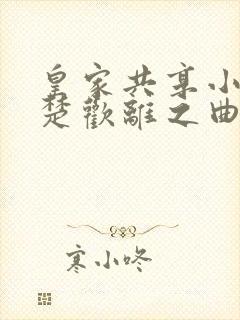 皇家共享小
楚歡離之曲
寒小咚